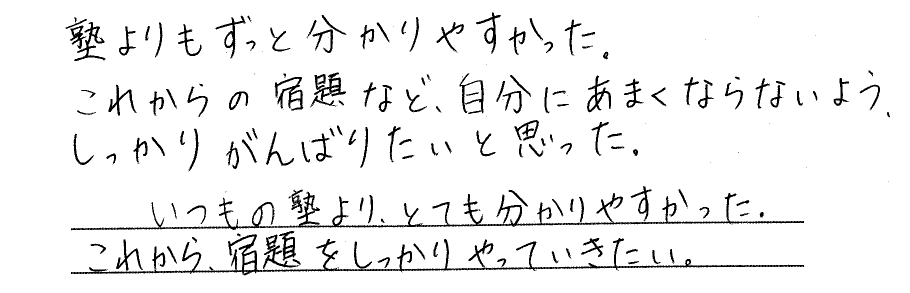 塾よりもずっと分かりやすかった.
これからの宿題など、自分にあまくならないよう、
しっかりがんばりたいと思った.
いつもの塾より、とても分かりやすかった.
これから、宿題をしっかりやっていきたい。